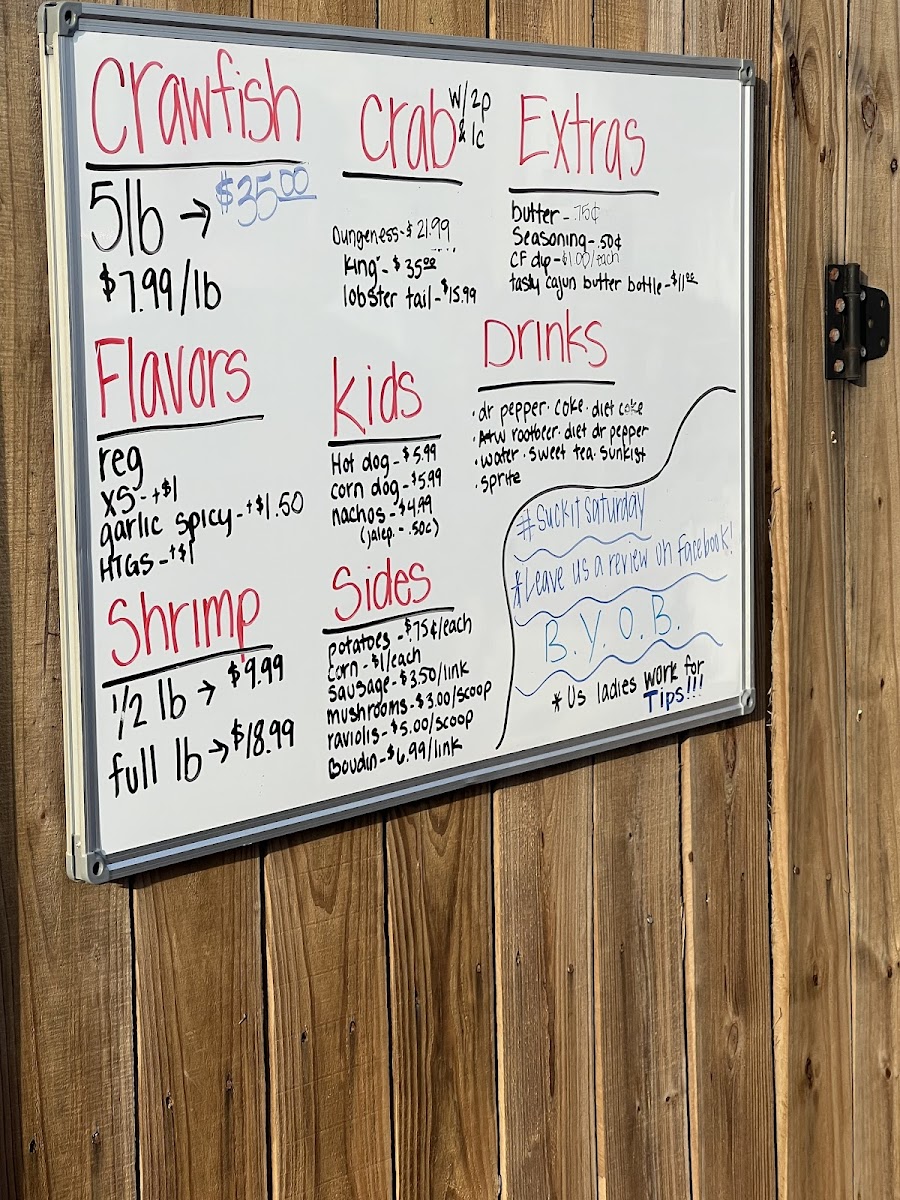 Crawfish
5lb → $35.00
$7.99/lb
Flavors
reg
XS - +$1
garlic spicy - +$1.50
HTGS - +$1
Shrimp
1/2 lb → $9.99
full lb → $18.99
Crab w/ 2p & 1c
Dungeness - $21.99
King - $35.00
lobster tail - $15.99
Kids
Hot dog - $5.99
corn dog - $5.99
nachos - $4.99
(jalep. - .50¢)
Sides
potatoes - $.75¢/each
corn - $1/each
sausage - $3.50/link
mushrooms - $3.00/scoop
raviolis - $5.00/scoop
Boudin - $6.99/link
Extras
butter - .75¢
Seasoning - .50¢
CF dip - $1.00/each
tasty cajun butter bottle - $11.00
Drinks
· dr pepper · coke · diet coke
· A+W rootbeer · diet dr pepper
· water · sweet tea · sunkist
· sprite
#suckit saturday
*Leave us a review on Facebook!
B.Y.O.B.
* Us ladies work for
Tips!!!